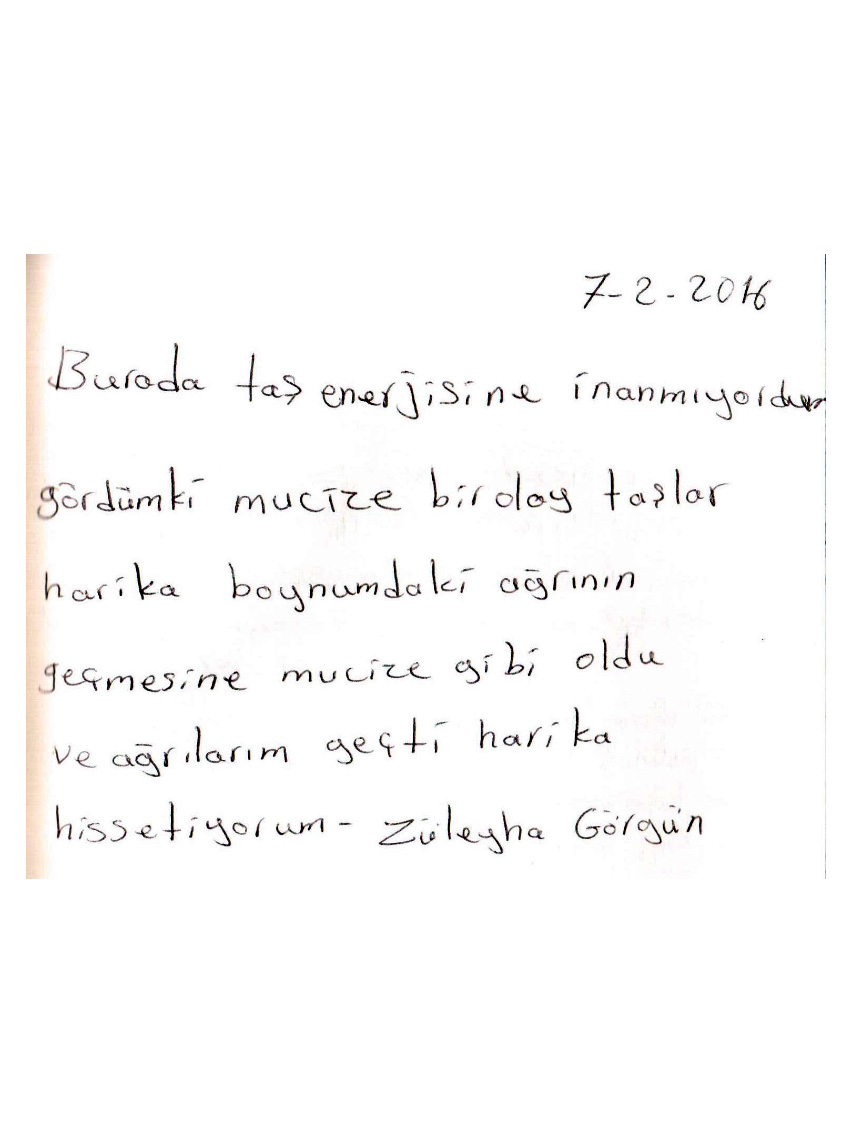 7-2-2016
Burada taş enerjisine inanmıyordum
gördümki mucize bir olay taşlar
harika boynumdaki ağrının
geçmesine mucize gibi oldu
ve ağrılarım geçti harika
hissetiyorum- Züleyha Görgün